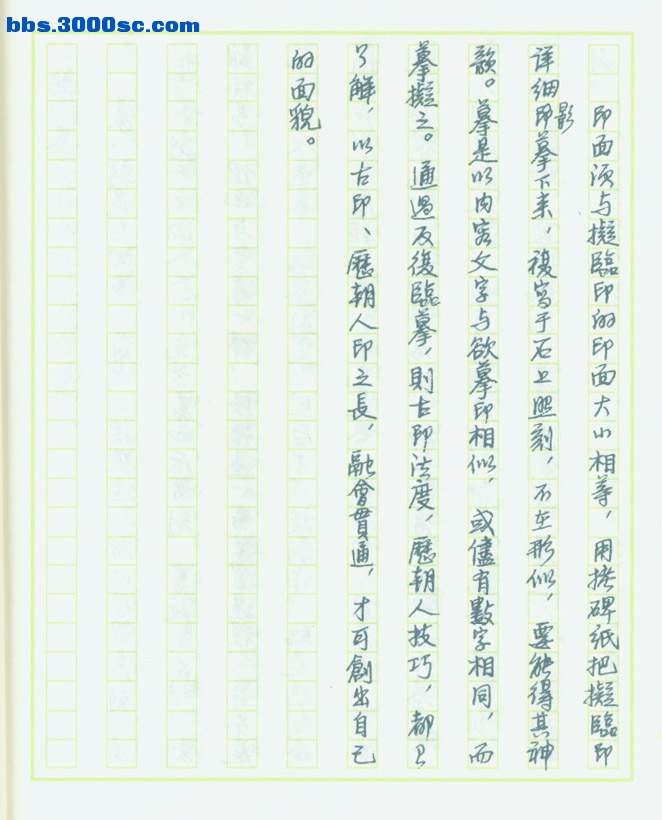 bbs.3000sc.com
印面须与擬臨印的印面大小相等，用碑紙把擬臨印
详细印影摹下来，複寫于石上照刻，不在形似，要能得其神
韻。摹是以内容文字与欲摹印相似，或儘有數字相同，而
摹擬之。通過反復臨摹，則古印法度，歷朝人技巧，都已
了解，以古印、歷朝人印之長，融會貫通，才可創出自己
的面貌。